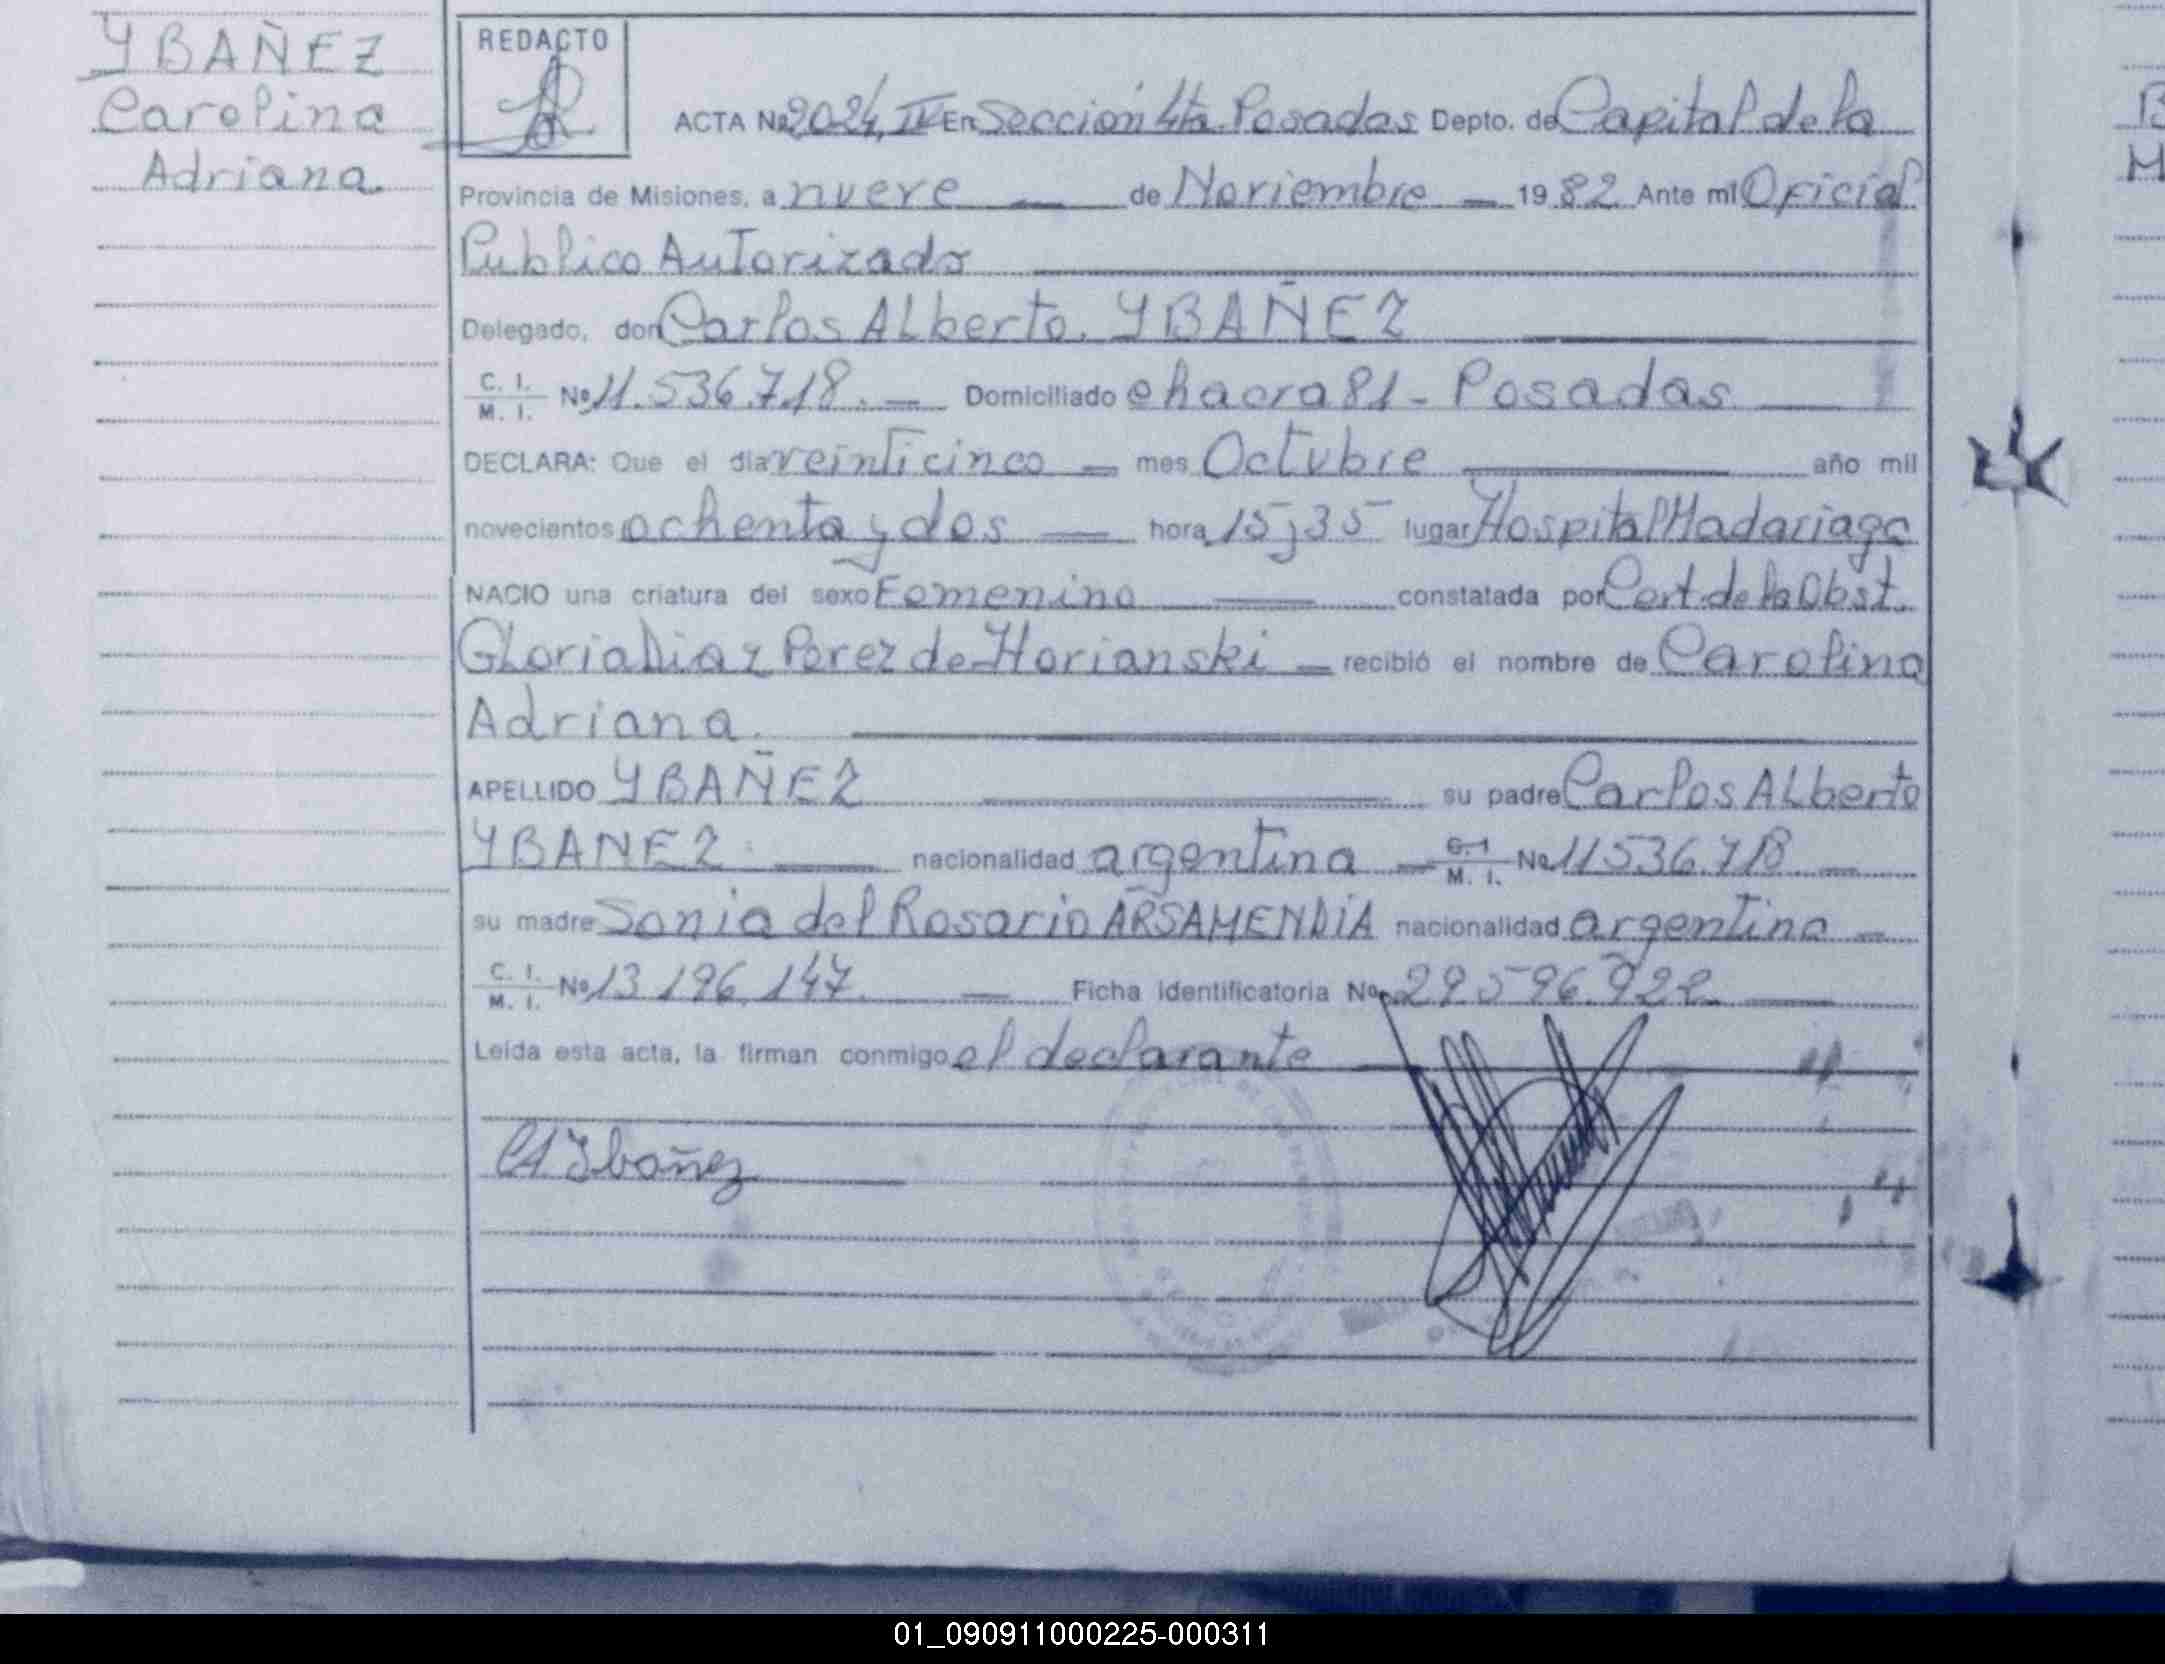 YBAÑEZ
Carolina
Adriana
REDACTO
ACTA Nº 2024, IV En Sección 4ta. Posadas Depto. de Capital de la
Provincia de Misiones, a nueve de Noviembre 1982 Ante mi Oficial
Publico Autorizado
Delegado, don Carlos Alberto. YBAÑEZ
C. I.
M. I. Nº 11.536.718. Domiciliado chacra 81 - Posadas
DECLARA: Que el dia veinticinco mes Octubre año mil
novecientos ochenta y dos hora 15,35 lugar Hospital Madariaga
NACIO una criatura del sexo Femenino constatada por Cert. de la Obst.
Gloria Diaz Perez de Horianski recibió el nombre de Carolina
Adriana.
APELLIDO YBAÑEZ su padre Carlos Alberto
YBANEZ nacionalidad argentina C. I.
M. I. Nº 11536.718
su madre Sonia del Rosario ARSAMENDIA nacionalidad argentina
C. I.
M. I. Nº 13196.147. Ficha identificatoria Nº 29596.922
Leida esta acta, la firman conmigo el declarante
CA Ibañez
01_090911000225-000311